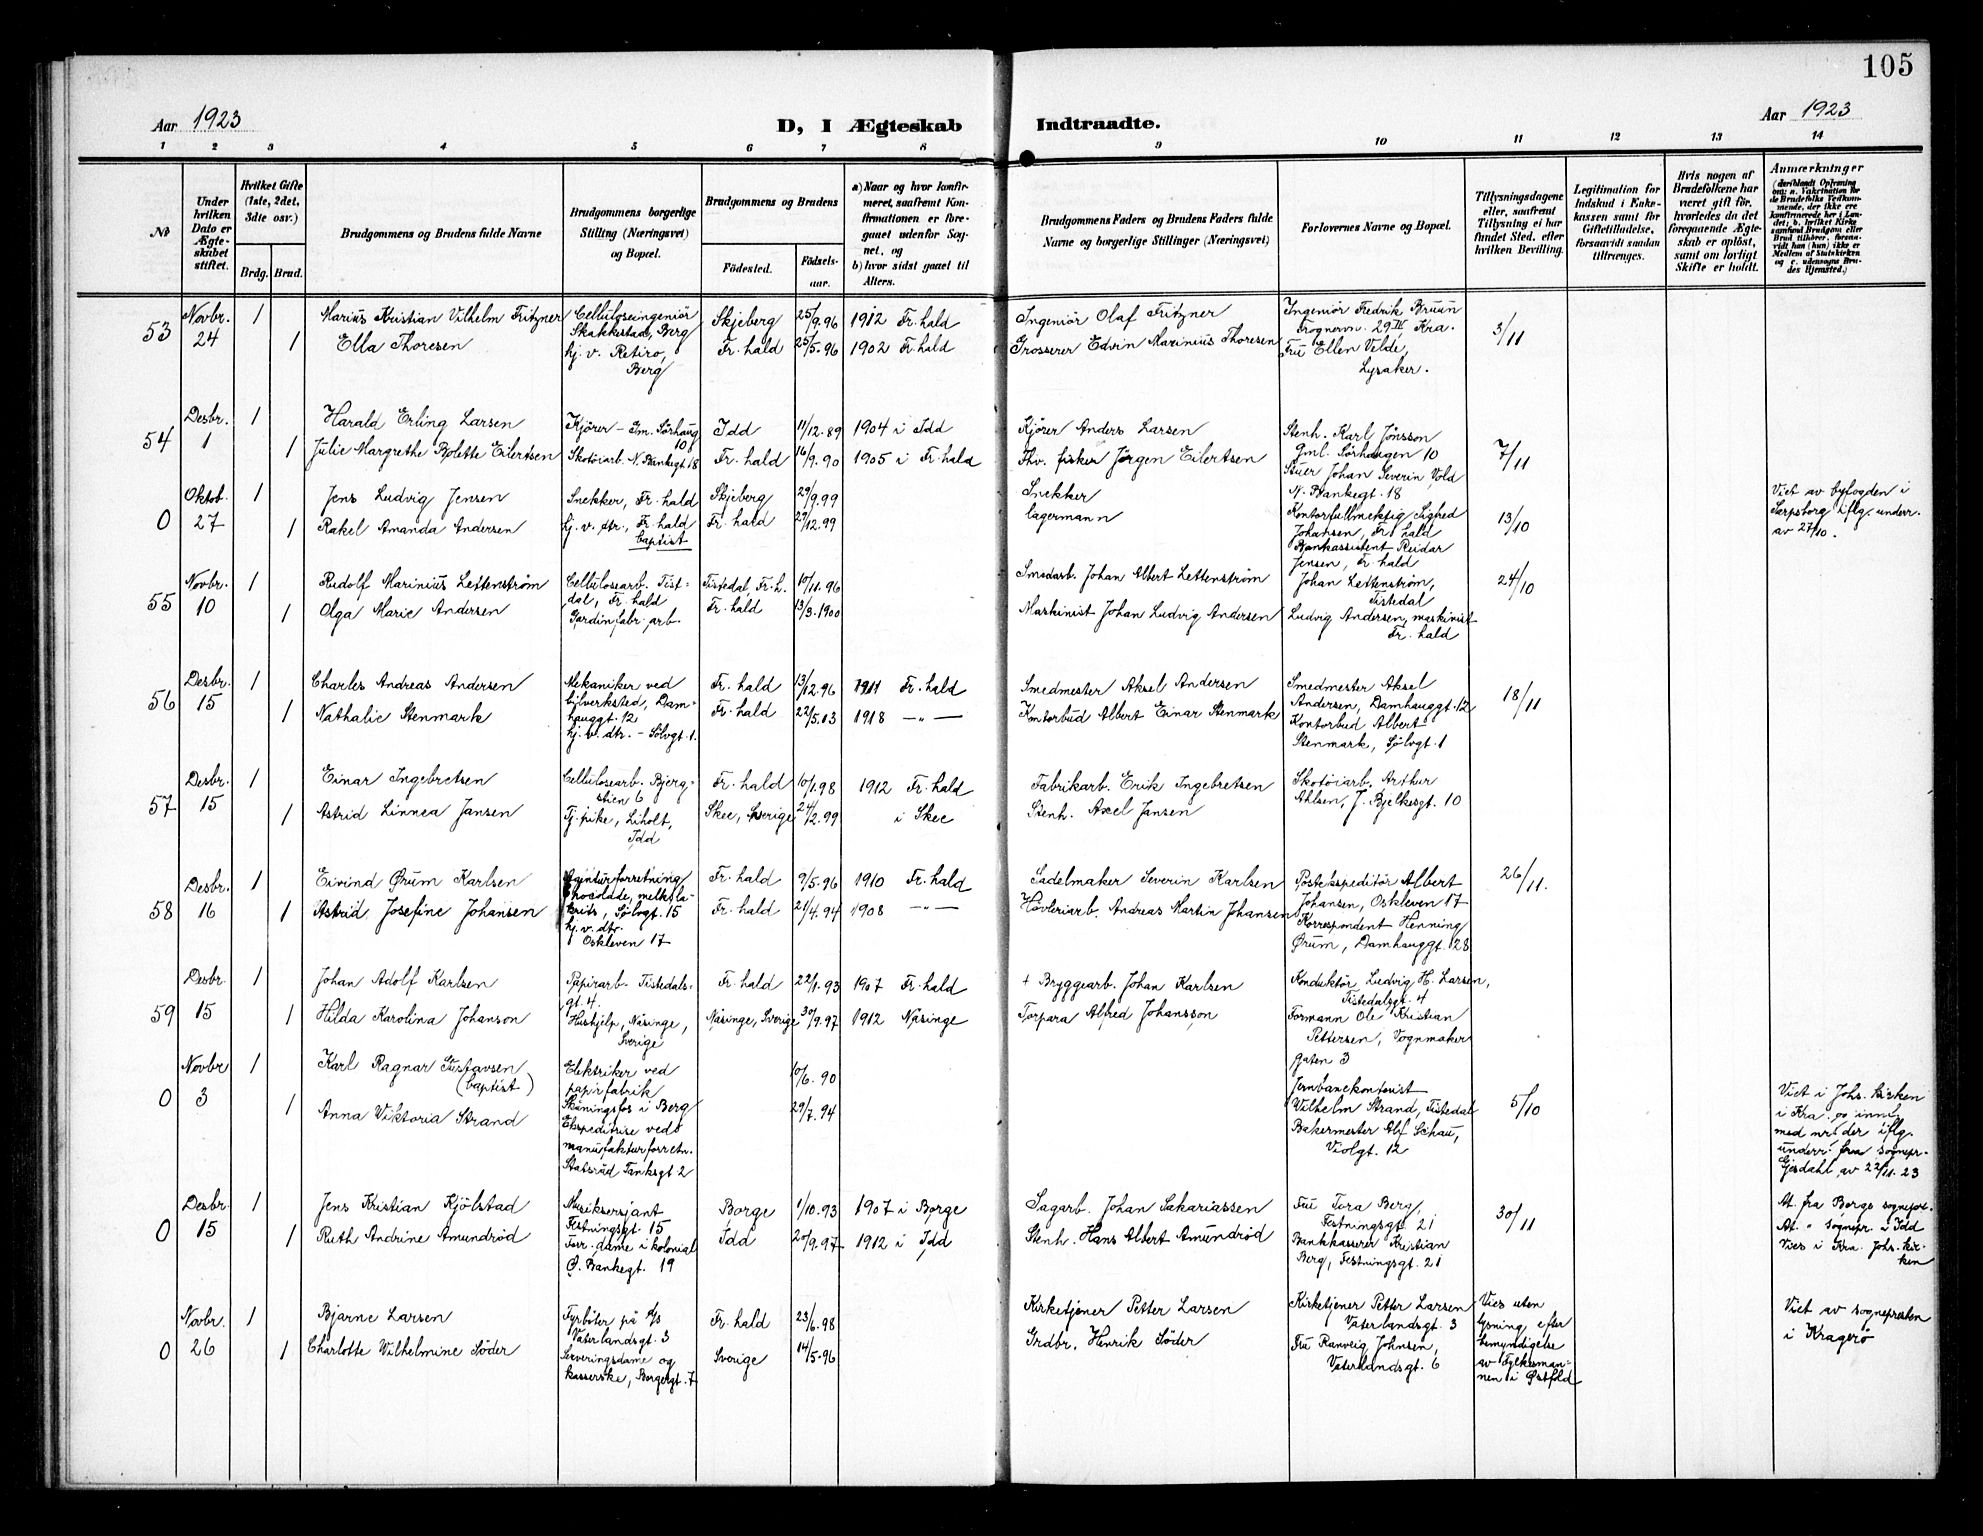 105
Aar 1923
D, I Ægteskab Indtraadte.
Aar 1923
1 2 3 4 5 6 7 8 9 10 11 12 13 14
No
Under hvilken Dato er Ægteskabet stiftet.
Hvilket Gifte (1ste, 2det, 3dte osv.)
Brdg. Brud.
Brudgommens og Brudens fulde Navne
Brudgommens borgerlige Stilling (Næringsvei) og Bopæl.
Brudgommens og Brudens
Födested.
Födselsaar.
a) Naar og hvor konfirmeret, saafremt Konfirmationen er foregaaet udenfor Sognet, og
b) hvor sidst gaaet til Alters.
Brudgommens Faders og Brudens Faders fulde Navne og borgerlige Stillinger (Næringsvei)
Forlovernes Navne og Bopæl.
Tillysningsdagene eller, saafremt Tillysning ei har fundet Sted, efter hvilken Bevilling.
Legitimation for Indskud i Enkekassen samt for Giftetilladelse, forsaavidt saadan tiltrænges.
Hvis nogen af Brudefolkene har været gift før, hvorledes da det foregaaende Ægteskab er oplöst, samt om lovligt Skifte er holdt.
Anmærkninger
53 Novbr. 24 1 Marius Kristian Vilhelm Fritzner Celluloseingeniör Skakkestad, Berg Skjeberg 25/9.96 1912 Fr.hald Ingeniör Olaf Fritzner Ingeniör Fredrik Bruun Frognervn. 29 IV Kra. 3/11
1 Ella Thoresen hj. v. Retiro, Berg Fr. hald 25/5.96 1902 Fr.hald Grosserer Edvin Marinius Thoresen Fru Ellen Velde, Lysaker.
54 Desbr. 1 1 Harald Erling Larsen Kjörer - Gm. Sörhaug 10 Idd 11/12.89 1904 i Idd Kjörer Anders Larsen Stenh. Karl Jönsson Gml. Sörhaugen 10 7/11
1 Julie Margrethe Bolette Eilertsen Skotöiarb. N. Bankegt. 18 Fr. hald 16/9.90 1905 i Fr.hald Fhv. fisker Jörgen Eilertsen Stuer Johan Severin Vold N. Bankegt. 18
0 Oktob. 27 1 Jens Ludvig Jensen Snekker, Fr. hald Skjeberg 29/9.99 Snekker Kontorfullmektig Sigfred Johansen, Fr. hald 13/10 Viet av byfogden i Sarpsborg iflg. underr. av 27/10.
1 Rakel Amanda Andersen hj. v. dtr., Fr. hald baptist Fr. hald 27/12.99 lagermann Bankassistent Reidar Jensen, Fr. hald
55 Novbr. 10 1 Rudolf Marinius Lettenström Cellulosearb. Tistdal, Fr. hald Tistedal, Fr.h. 10/11.96 Smedarb. Johan Albert Lettenström Johan Lettenström, Tistedal 24/10
1 Olga Marie Andersen Gardinfabr. arb. Fr. hald 13/3.1900 Maskinist Johan Ludvig Andersen Ludvig Andersen, maskinist Fr. hald
56 Desbr. 15 1 Charles Andreas Andersen Mekaniker ved bilverksted, Damhauggt. 12 Fr. hald 13/12.96 1911 Fr. hald Smedmester Aksel Andersen Smedmester Aksel Andersen, Damhauggt. 12 18/11
1 Nathalie Stenmark hj. v. dtr. - Sölvgt. 1. Fr. hald 22/5.03 1918 -"- Kontorbud Albert Einar Stenmark Kontorbud Albert Stenmark, Sölvgt. 1
57 Desbr. 15 1 Einar Ingebretsen Cellulosearb. Bjergstien 6 Fr. hald 10/1.98 1912 Fr. hald Fabrikarb. Erik Ingebretsen Skotöiarb. Arthur Ahlsen, J. Bjelkesgt. 10
1 Astrid Linnea Jansen Tj. pike, Liholt, Idd Skee, Sverige 24/12.99 i Skee Stenh. Axel Jansen
58 Desbr. 16 1 Eivind Ørum Karlsen Agenturforretning Chocolade, melk, lakrids, Sölvgt. 15 Fr. hald 9/5.96 1910 Fr. hald Sadelmaker Severin Karlsen Postekspeditör Albert Johansen, Oskleven 17 26/11.
1 Astrid Josefine Johansen hj. v. dtr. Oskleven 17 Fr. hald 21/4.94 1908 -"- Hövleriarb. Andreas Martin Johansen Korrespondent Henning Ørum, Damhauggt. 28
59 Desbr. 15 1 Johan Adolf Karlsen Papirarb. Tistedalsgt. 4. Fr. hald 22/1.93 1907 Fr. hald + Bryggearb. Johan Karlsen Konduktör Ludvig H. Larsen, Tistedalsgt. 4
1 Hilda Karolina Johanson Hushjelp, Näsinge, Sverige Näsinge, Sverige 30/9.97 1912 Näsinge Torpara Alfred Johansson Formann Ole Kristian Pettersen, Vognmakergaten 3
0 Novbr 3 1 Karl Ragnar Gustavsen (baptist) Elektriker ved papirfabrik Skåningsfos i Berg 10/6.90 Jernbanekontorist Wilhelm Strand, Tistedal 5/10 Viet i Johs. kirken i Kra. og innl. med nr 1 der iflg. underr. fra sognepr. Gjesdahl, av 22/11.23
1 Anna Viktoria Strand Ekspeditrise ved manufakturforretn. Statsråd Tanksgt 2 29/7.94 Bakermester Alf Schau, Violgt. 12
0 Desbr. 15 1 Jens Kristian Kjölstad Musiksersjant Festningsgt. 15 Borge 1/10.93 1907 i Borge Sagarb. Johan Sakariassen Fru Tora Berg, Festningsgt. 21 30/11 At. fra Borge sognepr. At. " sognepr. i Idd Vies i Kra. Johs. kirken
1 Ruth Andrine Amundröd Forr. dame i kolonial Ø. Bankegt. 19 Idd 20/9.97 1912 i Idd Stenh. Hans Albert Amundröd Bankkasserer Kristian Berg, Festningsgt. 21
0 Novbr. 26 1 Bjarne Larsen Fyrböter på d/s Vaterlandsgt. 3 Fr. hald 23/6.98 Kirketjener Petter Larsen Kirketjener Petter Larsen Vaterlandsgt. 3 Vies uten lysning efter bemyndigelse av Fylkesmannen i Østfold Viet av sognepresten i Kragerö
1 Charlotte Wilhelmine Söder Serveringsdame og kasserske, Borgergt. 7 Sverige 14/5.96 Grdbr. Henrik Söder Fru Ranveig Johnsen, Vaterlandsgt. 6